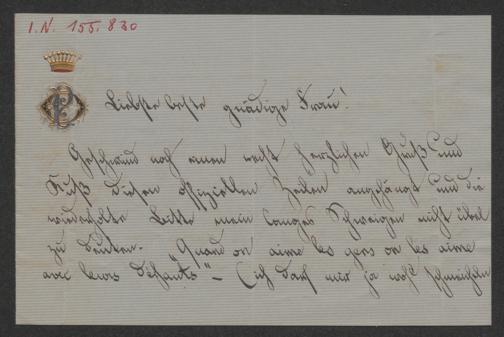 I.N. 155.830
Liebste beste gnädige Frau!
Geschwind noch einen recht herzlichen Gruß und
Kuß diesen offiziellen Zeilen angehängt und die
Bitte mein langes Schweigen nicht übel
zu deuten. "Quand on aime les gens on les aime
avec leurs défauts" – (ich darf mir ja wohl schmeicheln